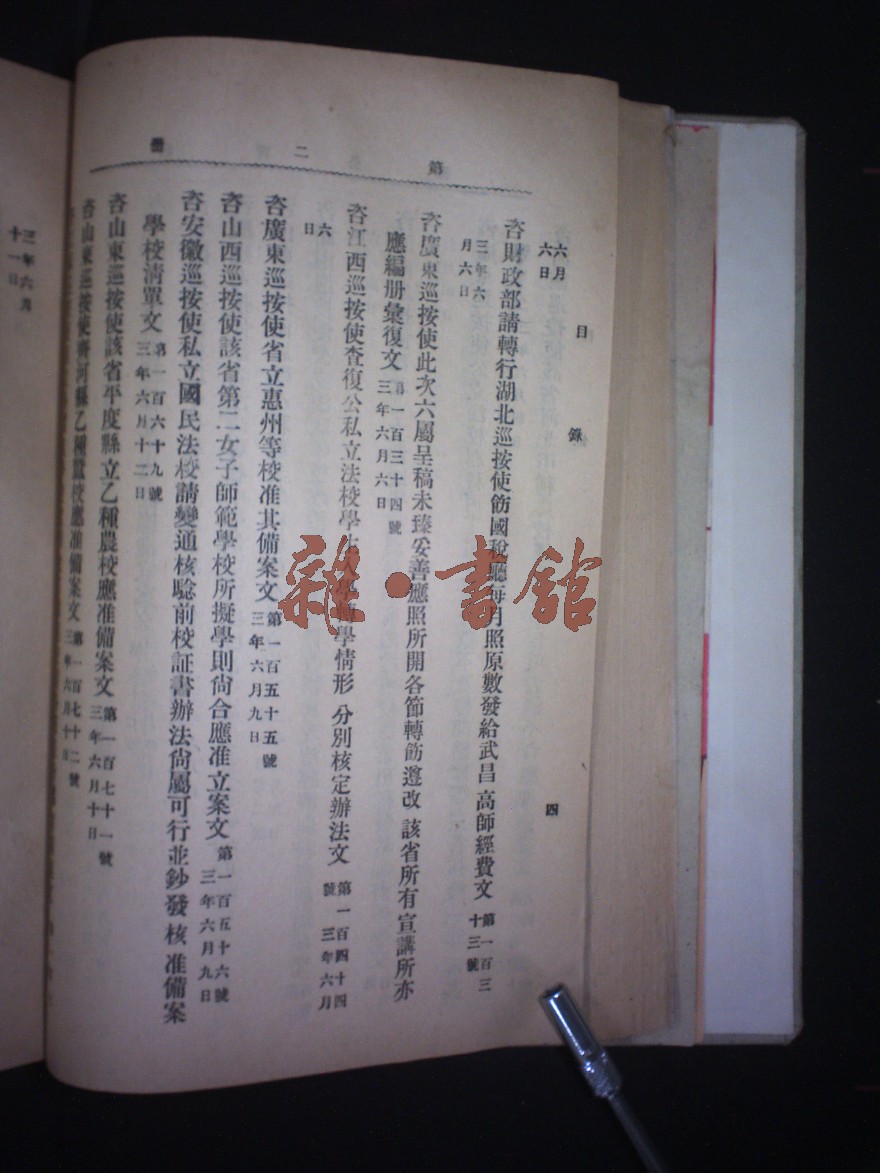 第二冊
目錄 四
六月六日
咨財政部請轉行湖北巡按使飭國稅廳每月照原數發給武昌高師經費文 第一百三十三號
三年六月六日
咨廣東巡按使此次六屬呈稿未臻妥善應照所開各節轉飭遵改該省所有宣講所亦
應編册彙復文 第一百三十四號 三年六月六日
咨江西巡按使查復公私立法校學生入學轉學情形分別核定辦法文 第一百四十四號 三年六月
六日
咨廣東巡按使省立惠州等校准其備案文 第一百五十五號 三年六月九日
咨山西巡按使該省第二女子師範學校所擬學則尙合應准立案文 第一百五十六號 三年六月九日
咨安徽巡按使私立國民法校請變通核驗前校証書辦法尙屬可行並鈔發核准備案
學校清單文 第一百六十九號 三年六月十二日
咨山東巡按使該省平度縣立乙種農校應准備案文 第一百七十一號 三年六月十日
咨山東巡按使齊河縣乙種蠶校應准備案文 第一百七十二號 三年六月十日
三年六月
十一日
雜·書館